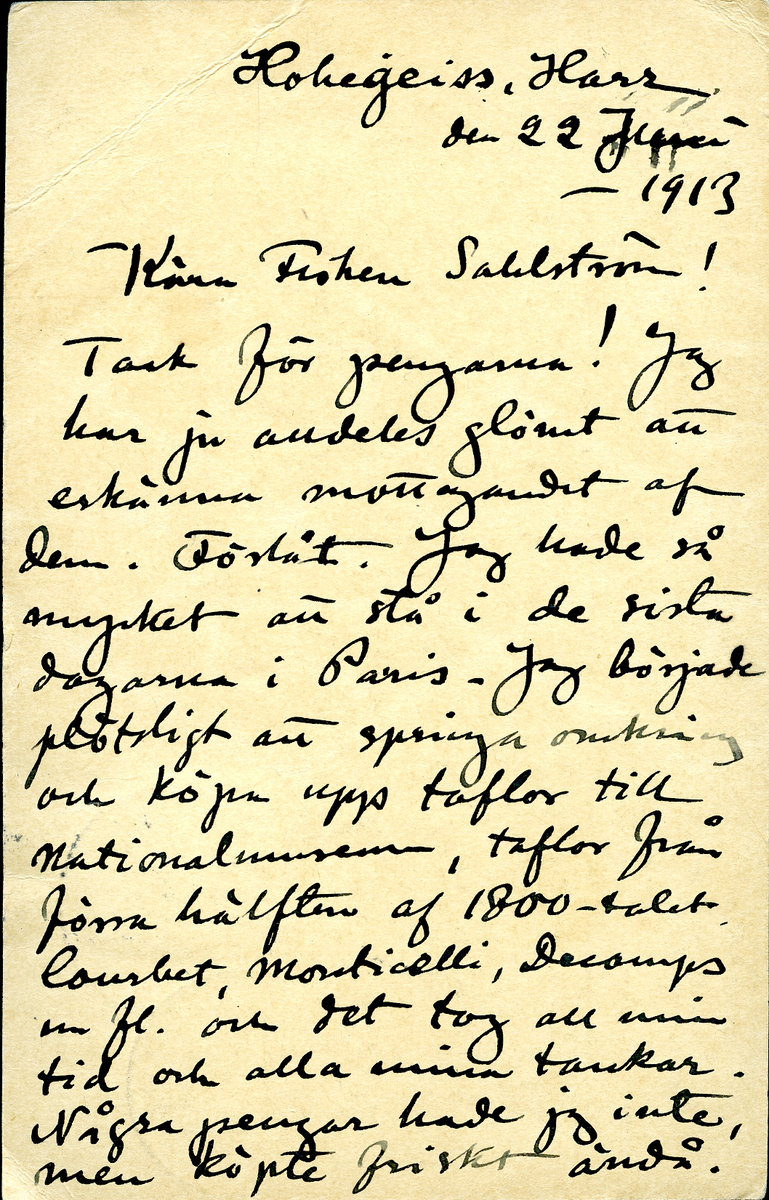 Hohegeiss, Harz
den 22 Juni
– 1913
Kära Fröken Sahlström!
Tack för pengarna! Jag
har ju alldeles glömt att
erkänna mottagandet af
dem. Förlåt. Jag hade så
mycket att stå i de sista
dagarna i Paris – Jag började
plötsligt att springa omkring
och köpa upp taflor till
Nationalmuseum, taflor från
förra hälften af 1800-talet.
Courbet, Monticelli, Decamps
m fl. och det tog all min
tid och alla mina tankar.
Några pengar hade jag inte,
men köpte friskt ändå.